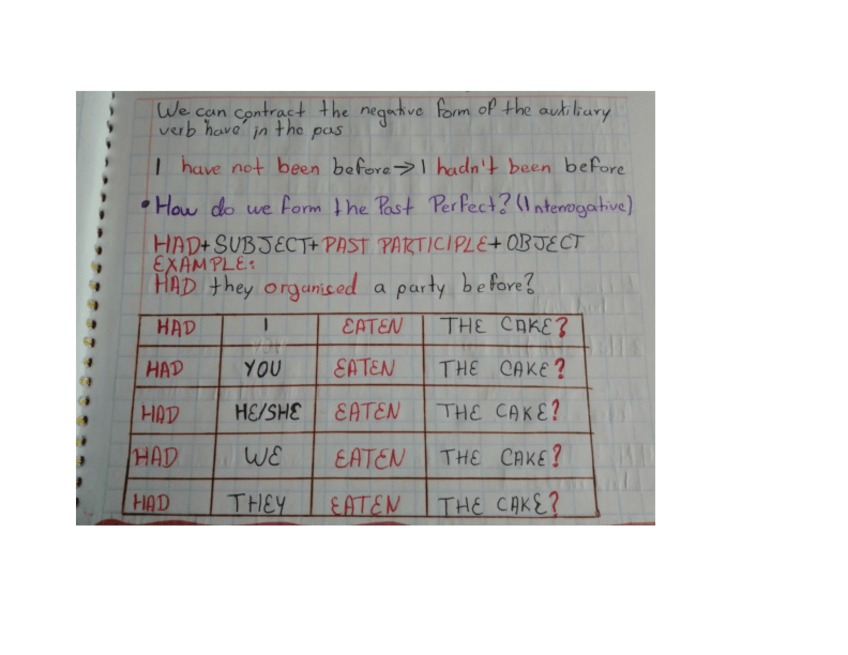 We can contract the negative form of the auxiliary
verb 'have' in the pas
I have not been before → I hadn't been before
• How do we form the Past Perfect? (Interrogative)
HAD + SUBJECT + PAST PARTICIPLE + OBJECT
EXAMPLE:
HAD they organised a party before?
HAD I EATEN THE CAKE?
HAD YOU EATEN THE CAKE?
HAD HE/SHE EATEN THE CAKE?
HAD WE EATEN THE CAKE?
HAD THEY EATEN THE CAKE?